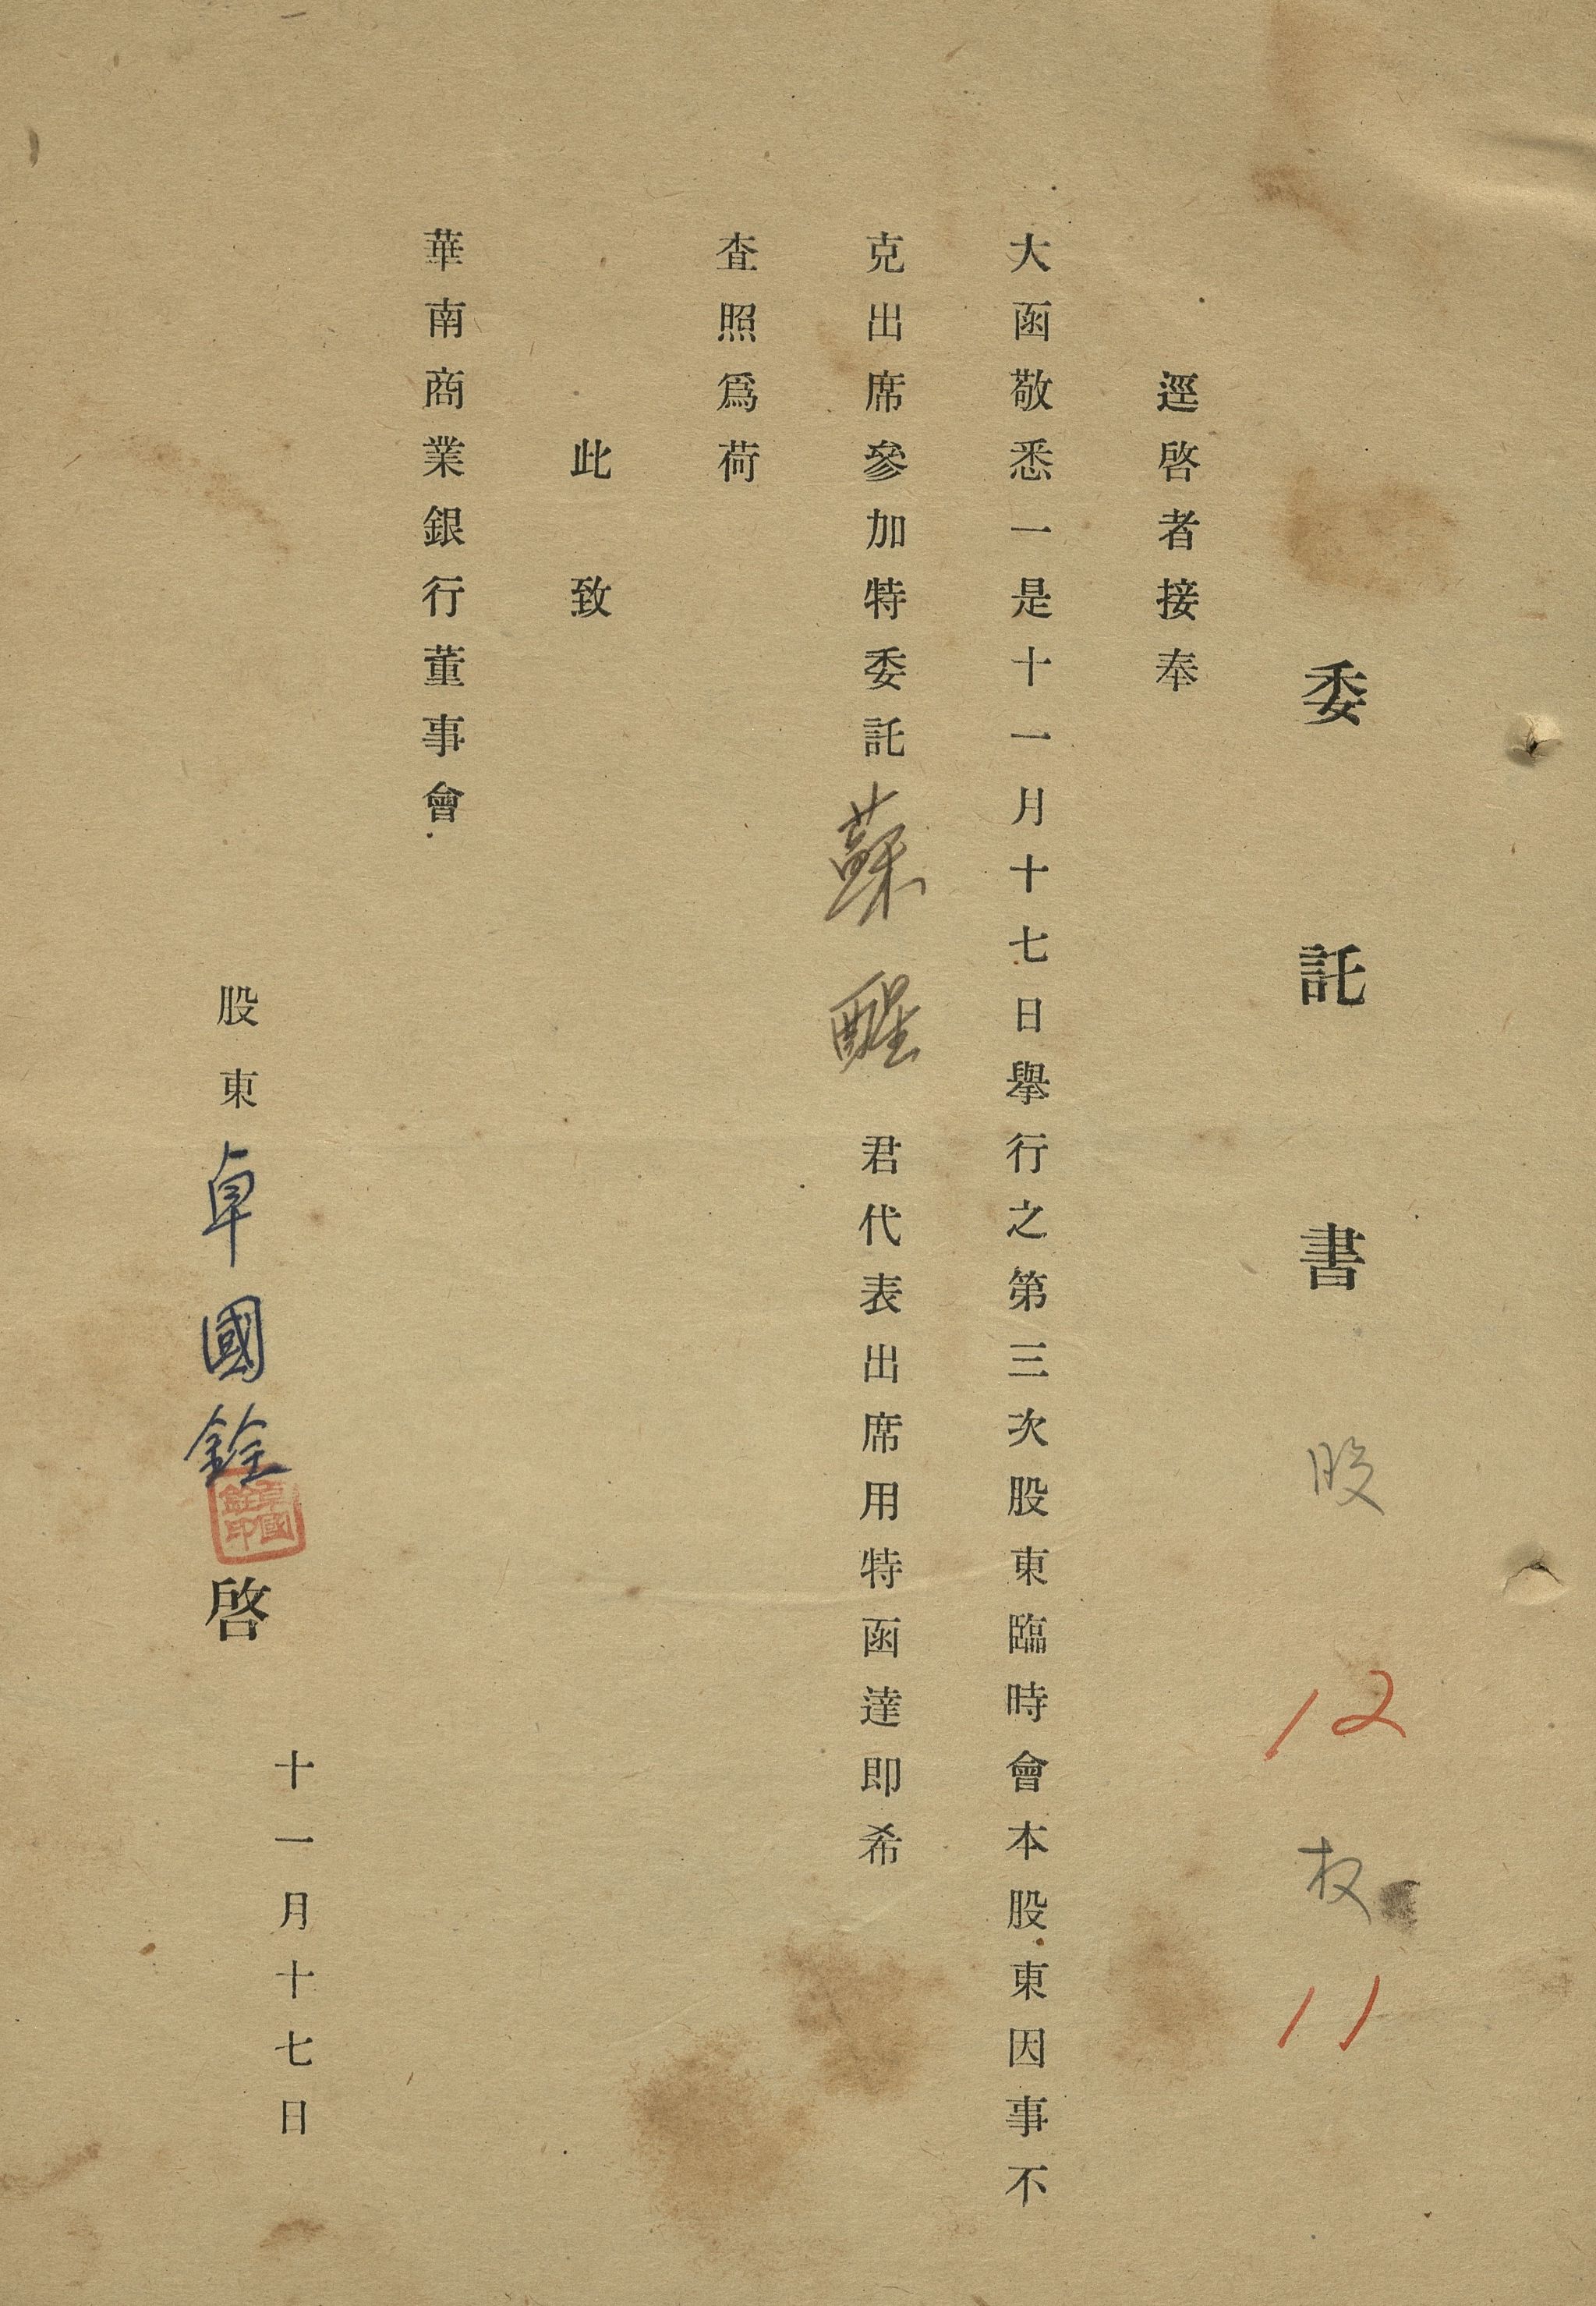 委託書 股 12 权 11
逕啓者接奉
大函敬悉一是十一月十七日舉行之第三次股東臨時會本股東因事不
克出席參加特委託蘇醒君代表出席用特函達即希
查照爲荷
此致
華南商業銀行董事會
十一月十七日
股東卓國銓啓
卓國銓印